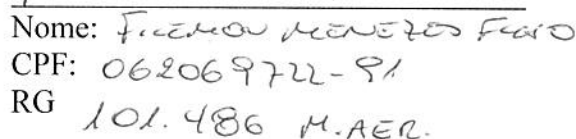 Nome: Filemon Menezes Filho
CPF: 062069722-91
RG 101.486 M.AER.